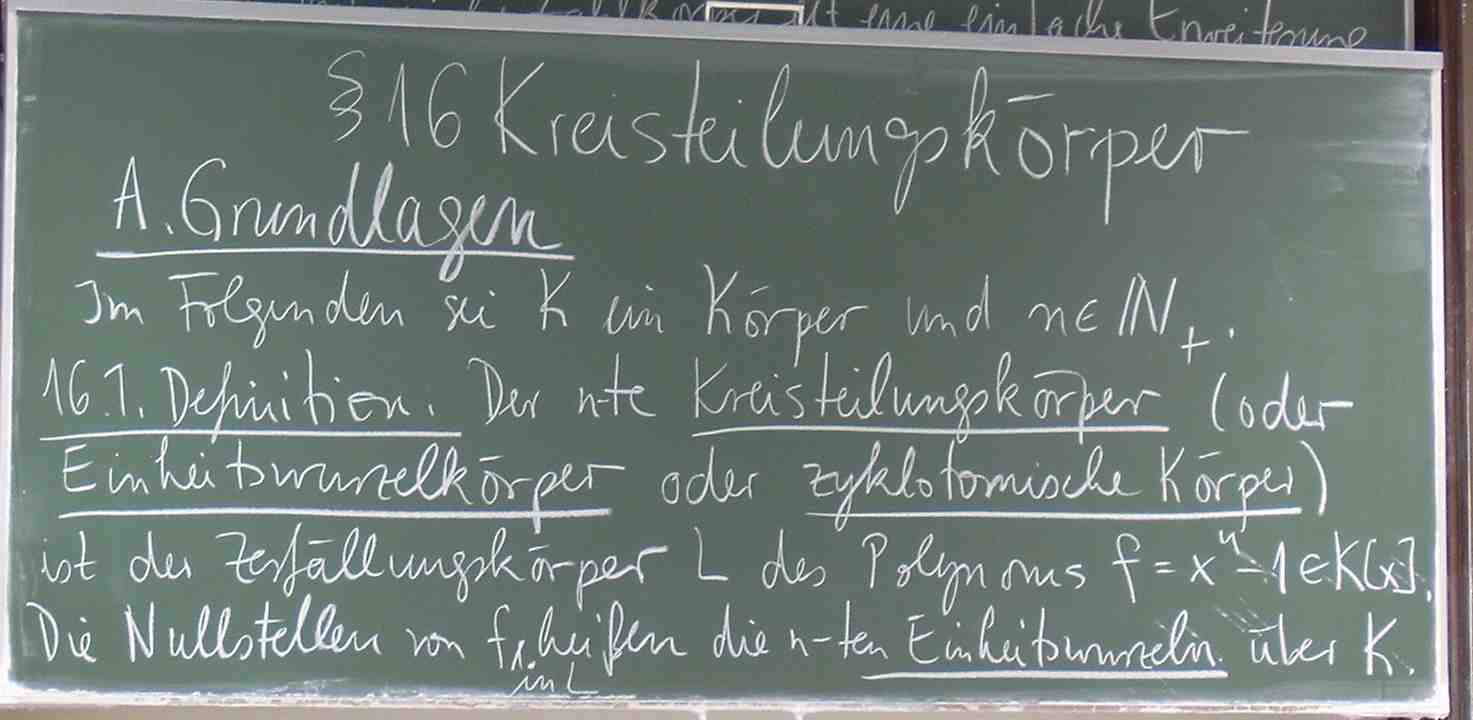 ist eine einfache Erweiterung
§ 16 Kreisteilungskörper
A. Grundlagen
Im Folgenden sei K ein Körper und n ∈ ℕ₊.
16.1. Definition. Der n-te Kreisteilungskörper (oder
Einheitswurzelkörper oder zyklotomische Körper)
ist der Zerfällungskörper L des Polynoms f = xⁿ - 1 ∈ K[x].
Die Nullstellen von f in L heißen die n-ten Einheitswurzeln über K.